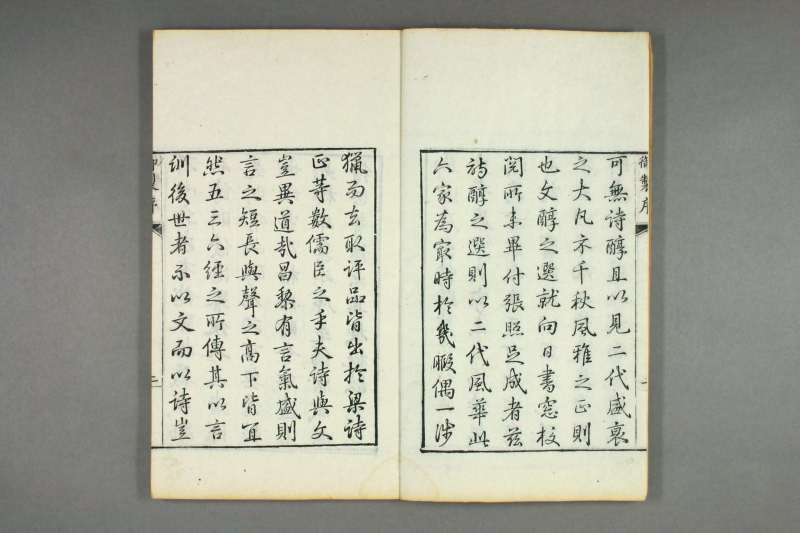 御製序
可無詩醇且以見二代盛衰
之大凡示千秋風雅之正則
也文醇之選就向日書窓校
閱所未畢付張照足成者茲
詩醇之選則以二代風華此
六家為最時於幾暇偶一涉
獵而去取評品皆出於梁詩
正等數儒臣之手夫詩與文
豈異道哉昌黎有言氣盛則
言之短長與聲之高下皆宜
然五三六經之所傳其以言
訓後世者不以文而以詩豈
御製序
二